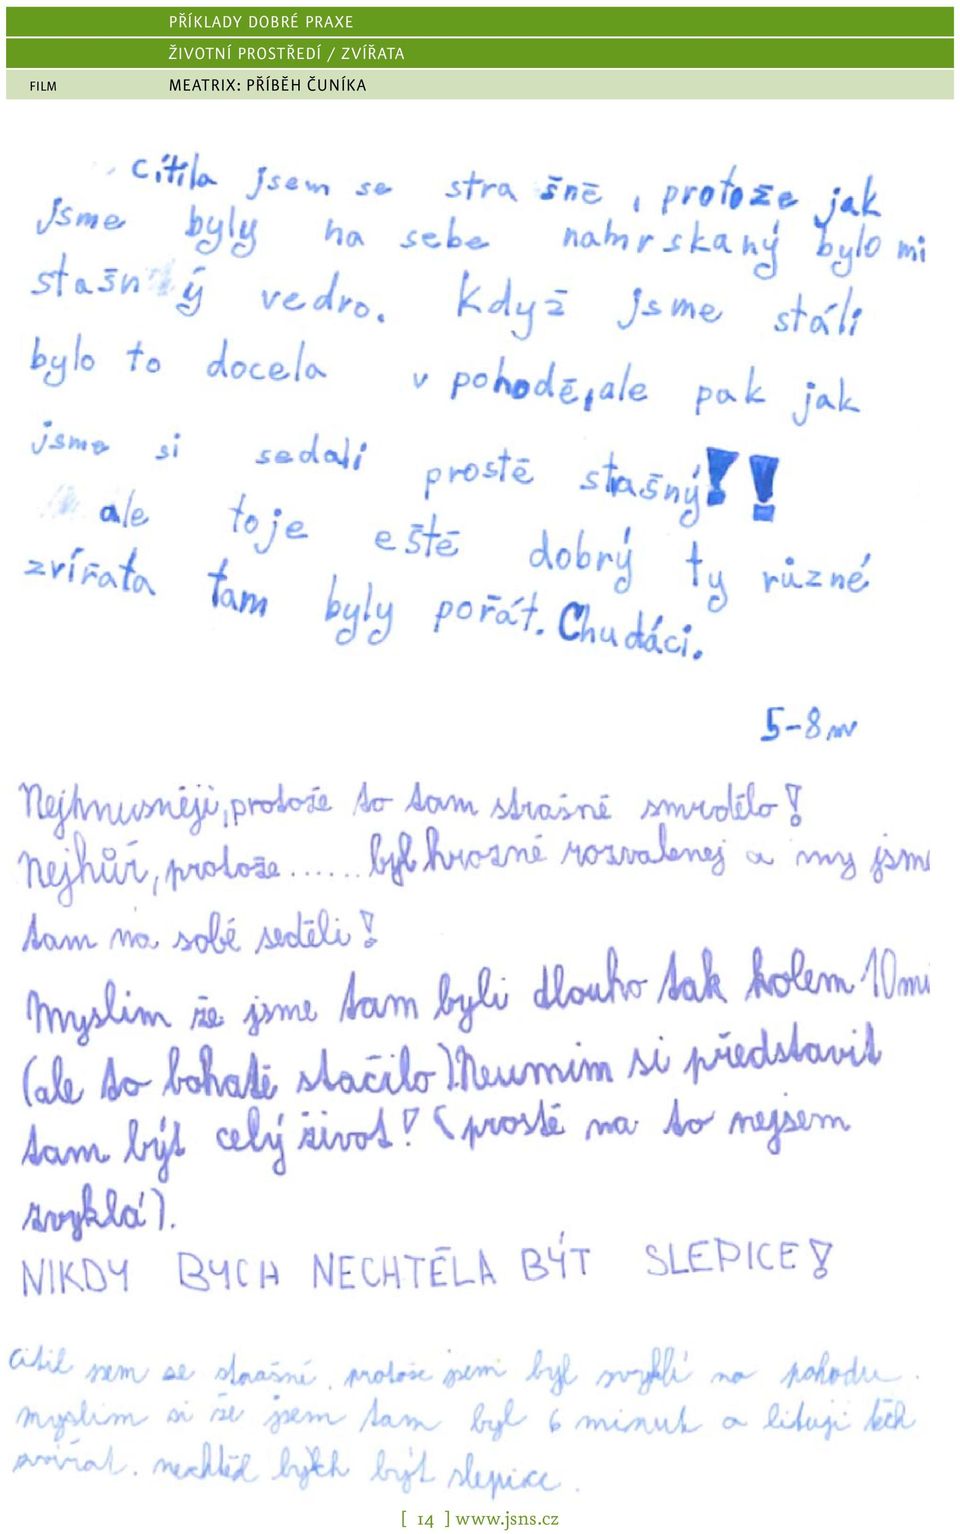 PŘÍKLADY DOBRÉ PRAXE
ŽIVOTNÍ PROSTŘEDÍ / ZVÍŘATA
FILM MEATRIX: PŘÍBĚH ČUNÍKA
cítila jsem se strašně, protože jak
jsme byly na sebe namrskaný bylo mi
stašný vedro. Když jsme stáli
bylo to docela v pohodě, ale pak jak
jsme si sedali prostě strašný!!
ale toje eště dobrý ty různé
zvířata tam byly pořát. Chudáci.
5-8 mi
Nejhnusněji, protože to tam strašně smrdělo!
Nejhůř, protože...... byl hrozně rozvalenej a my jsme
tam na sobě seděli!
Myslim že jsme tam byli dlouho tak kolem 10 mi
(ale to bohatě stačilo). Neumim si představit
tam být celý život! (prostě na to nejsem
zvyklá).
NIKDY BYCH NECHTĚLA BÝT SLEPICE!
Citil sem se strašně, protože jsem byl zvyklí na pohodu.
myslim si že jsem tam byl 6 minut a lituji těch
zvířat. nechtěl bych být slepice.
[ 14 ] www.jsns.cz